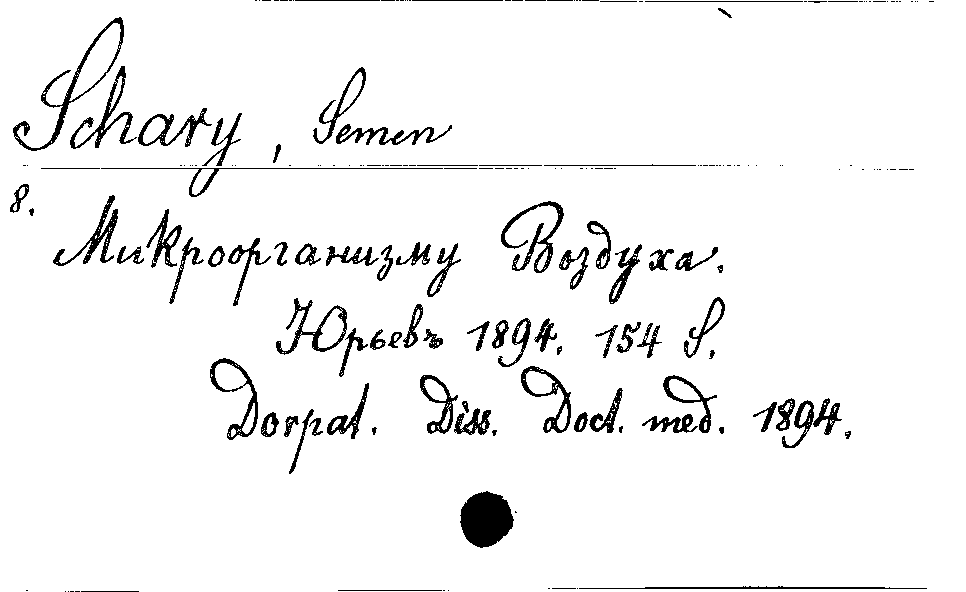 Schary, Semen
8.
Микроорганизму Воздуха.
Юрьевъ 1894. 154 S.
Dorpat. Diss. Doct. med. 1894.